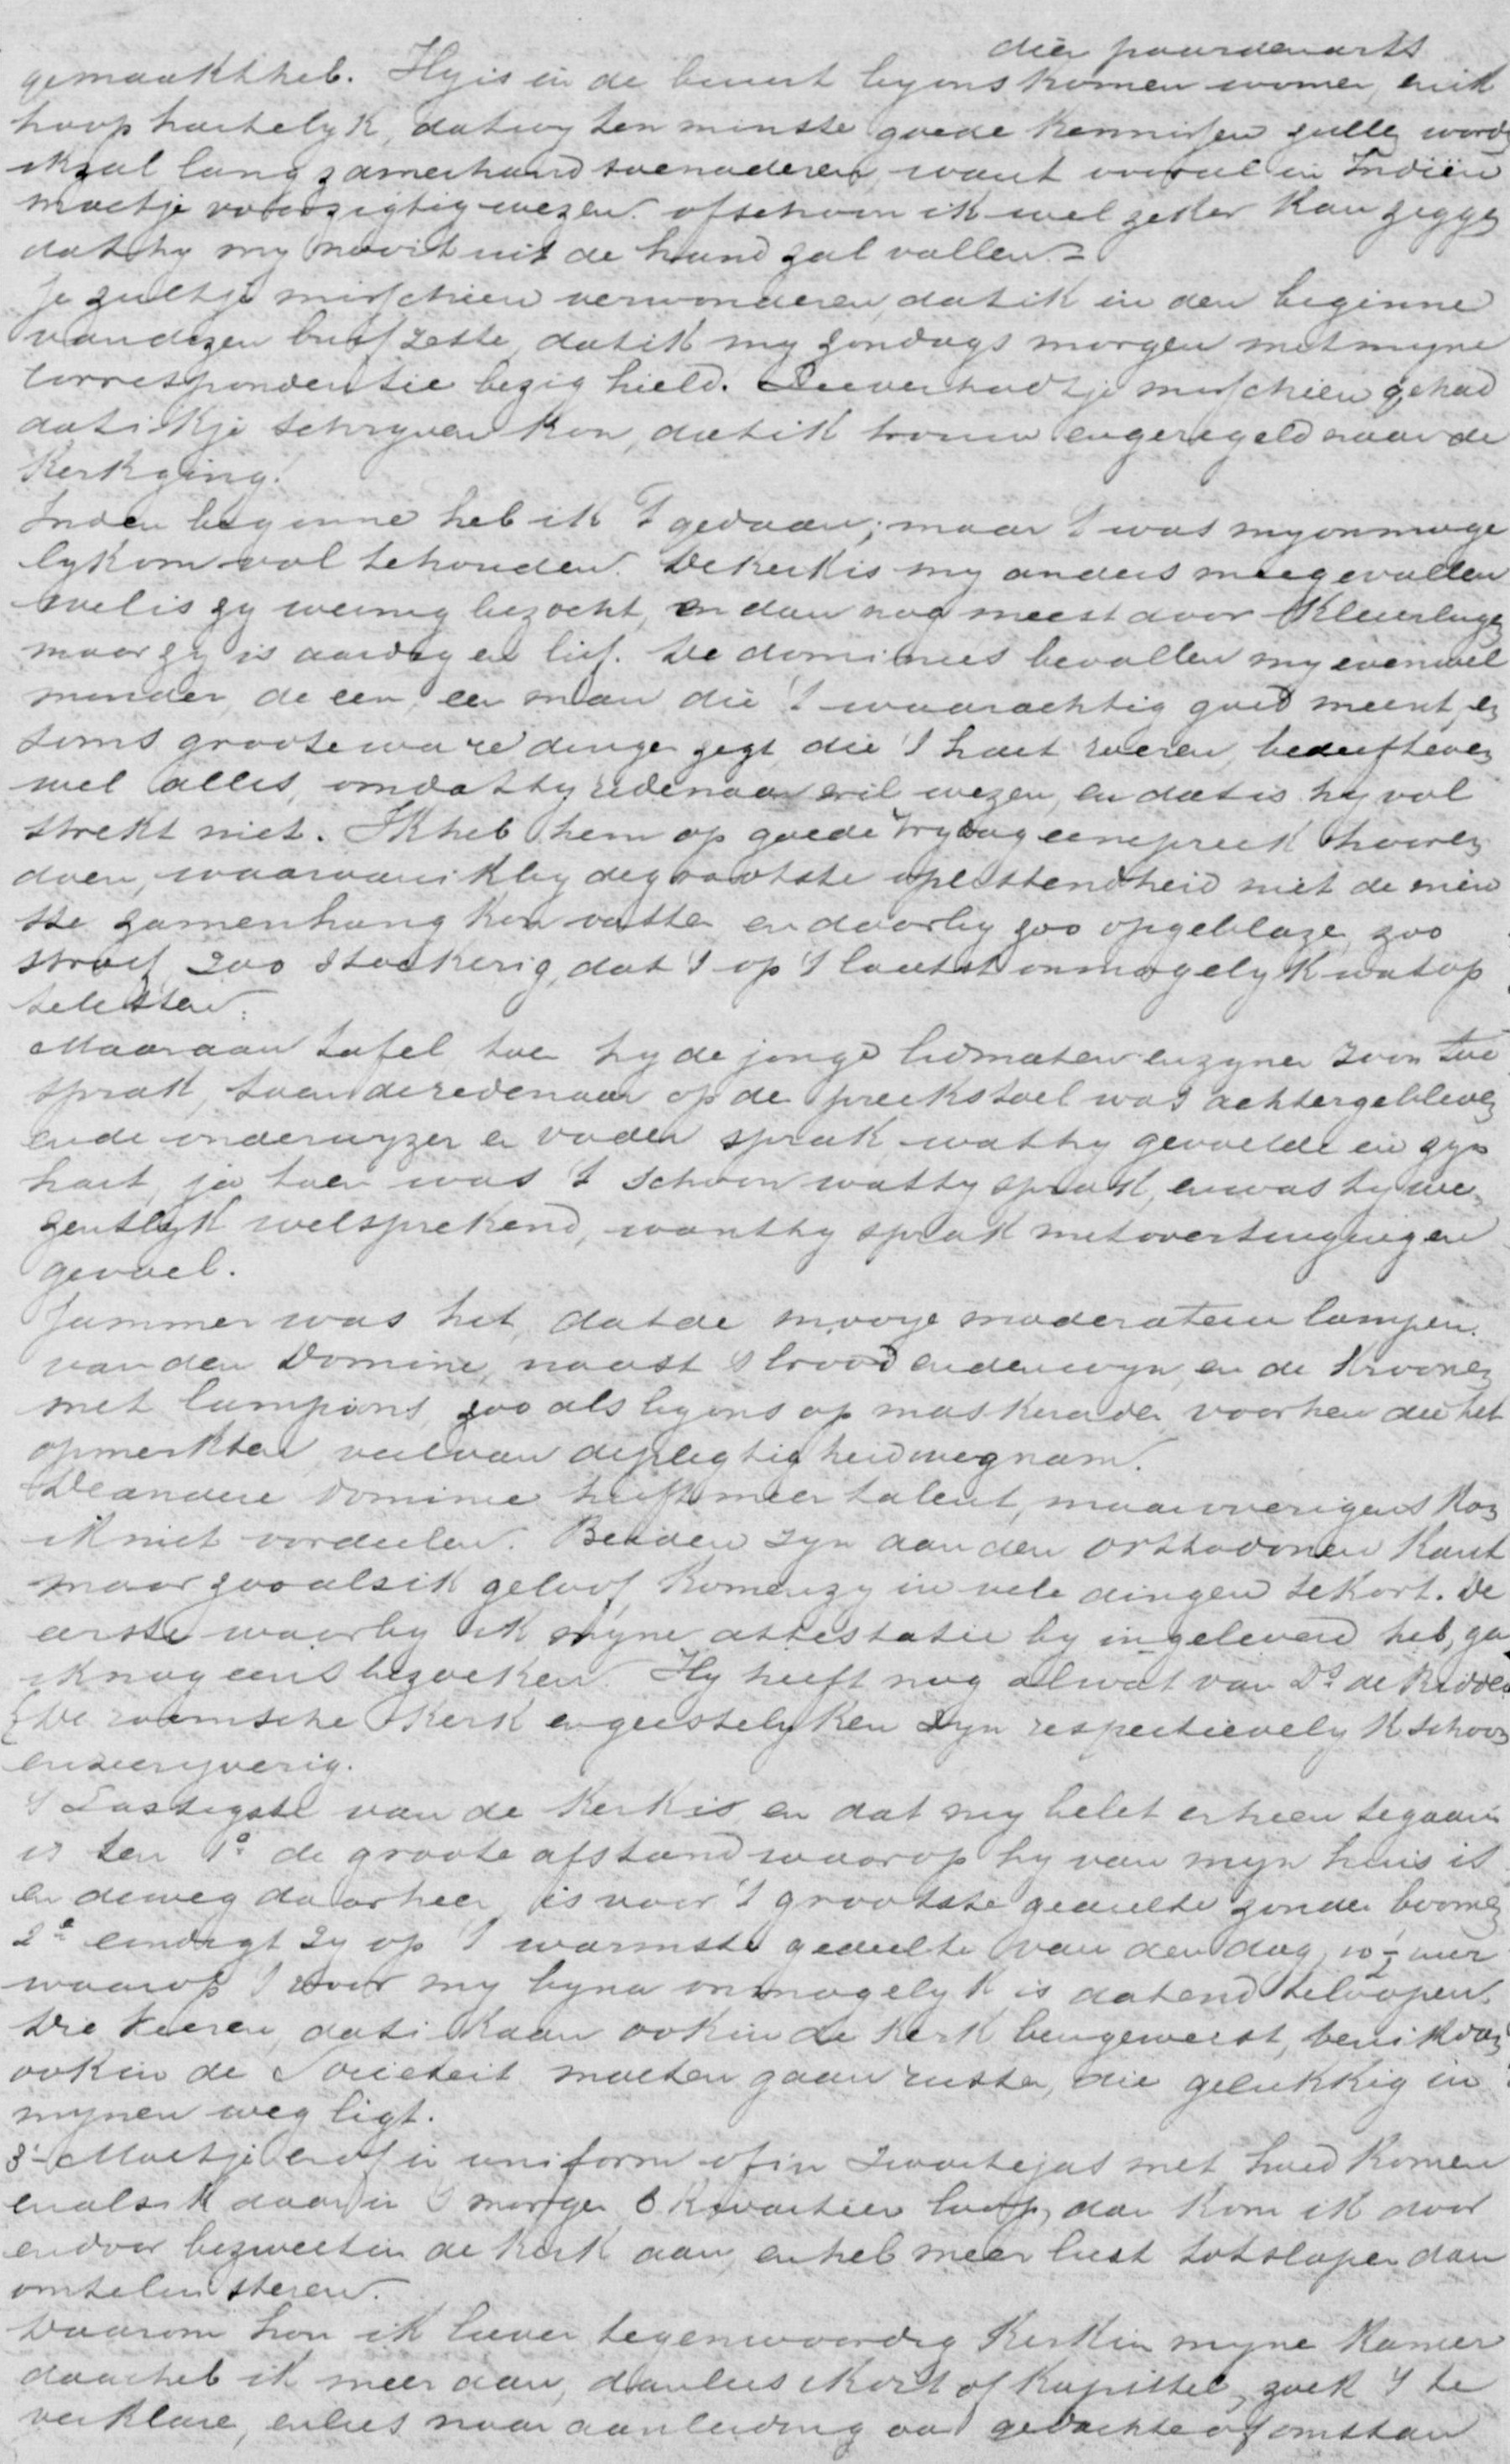 die paardenarts
gemaakt heb. Hy is in de buurt by ons komen wonen, en ik
hoop hartelyk, dat wy ten minste goede kennissen zulle worde
ik zal langzamerhand toenaderen, want vooral in Indiën
moet je voorzigtig wezen. ofschoon ik wel zeker kan zegge
dat hy my nooit uit de hand zal vallen.
Je zult je misschien verwonderen, dat ik in den beginne
van dezen brief zette, dat ik my zondags morgen met myne
correspondentie bezig hield. Liever hadt je misschien gehad
dat ik je schryven kon, dat ik trouw en geregeld naar de
kerk ging.
In den beginne heb ik 't gedaan; maar 't was my onmoge
lyk om vol te houden. De kerk is my anders meegevallen
wel is zy weinig bezocht, en dan nog meest door kleurlinge
maar zy is aardig en lief. De dominees bevallen my evenwel
minder, de een, een man die 't waarachtig goed meent, en
soms groote ware dinge zegt die 't hart roeren, bederft even
wel alles, omdat hy redenaar wil wezen, en dat is hy vol
strekt niet. Ik heb hem op goede Vrydag eene preek hooren
doen, waarvan ik by de grootste oplettendheid niet de min
ste zamenhang kon vatten en daarby zoo opgeblaze, zoo
stroef zoo stootkerig, dat 't op 't laatst onmogelyk was op
te letten.
Maar aan tafel, toen hy de jonge lidmaten en zynen zoon toe
sprak, toen de redenaar op de preekstoel was achtergebleven
en de onderwyzer en vader sprak wat hy gevoelde in zyn
hart, ja toen was 't schoon wat hy sprak, en was hy we
zentlyk welsprekend, want hy sprak met overtuiging en
gevoel.
Jammer was het, dat de mooye moderateur lampen
van den Domine, naast 't brood en den wyn, en de kroonen
met lampions, zoo als by ons op maskerade, voor hen die het
opmerkten veel van de plegtigheid wegnam.
De andere Dominie heeft meer talent, maar overigens kan
ik niet oordeelen. Beiden zyn aan den orthodoxen kant
maar zooals ik geloof, komen zy in vele dingen te kort. De
eerste waarby ik myne attestatie by ingeleverd heb, ga
ik nog eens bezoeken. Hy heeft nog al wat van Ds. de Ridder
De roomsche kerk en geestelyken zyn respectievelyk schoon
en zeer yverig.
't Lastigste van de kerk is, en dat my belet er heen te gaan
is ten 1o de groote afstand waarop hy van myn huis is
en de weg daarheen is voor 't grootste gedeelte zonder boomen
2o eindigt zy op 't warmste gedeelte van den dag, 10 ½ uur
waarop 't voor my byna onmogelyk is dat end te loopen.
Drie keeren, dat ik dan ook in de kerk ben geweest, ben ik dan
ook in de Societeit moeten gaan rusten, die gelukkig in
mynen weg ligt.
3o Moet je er of in uniform of in zwarte jas met hoed komen
en als ik daar in 's morgen 3 kwartier loop, dan kom ik door
en door bezweet in de kerk aan, en heb meer lust tot slapen dan
om te luisteren.
Daarom hou ik liever tegenwoordig kerk in myne kamer
daar heb ik meer aan, dan lees ik ort of kapittel, zoek 't te
verklare, en lees naar aanleiding van gedachte of omstan